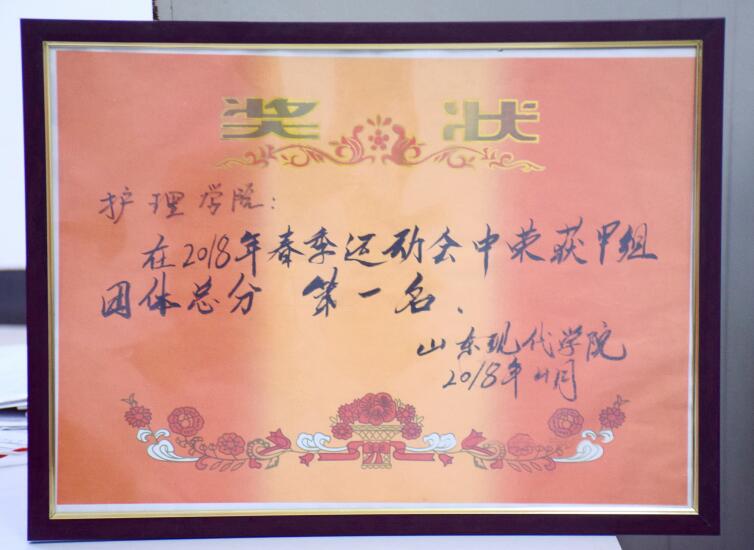 奖状
护理学院:
在2018年春季运动会中荣获甲组
团体总分 第一名.
山东现代学院
2018年4月